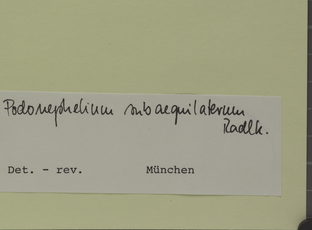 Podonephelium subaequilaterum
Radlk.
Det. - rev. München